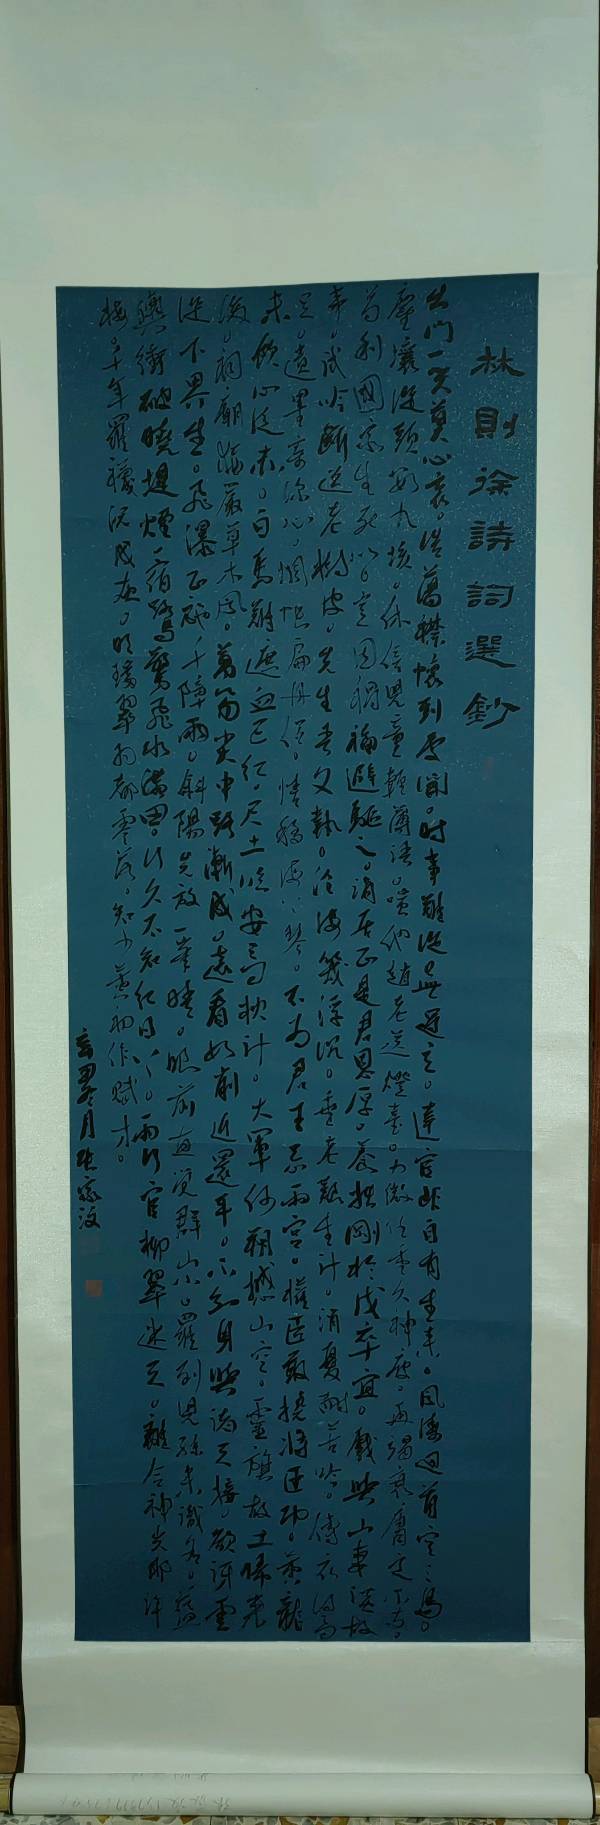 林則徐詩詞選鈔
出門一笑莫心哀。浩蕩襟懷到處開。時事難從無過立。達官非自有生來。風濤回首空三島。
塵壤從頭數九垓。休信兒童輕薄語。嗤他趙老送燈臺。力微任重久神疲。再竭衰庸定不支。
苟利國家生死以。豈因禍福避趨之。謫居正是君恩厚。養拙剛於戍卒宜。戲與山妻談故
事。試吟斷送老頭皮。先生。滄海幾浮沉。垂老艱生計。消夏耐苦吟。傳衣得高
足。遺墨寄深心。惆悵扁舟。情移海上琴。不為君王忌兩宮。權臣敢撓將臣功。黃龍
未飲心徒赤。白馬難遮血已紅。尺土臨安高枕計。大軍河朔撼山空。靈旗故土歸來
後。祠廟猶嚴草木風。萬笏尖中路漸成。遠看如削近還平。不知身與諸天接。卻訝雲
從下界生。飛瀑正拖千嶂雨。斜陽先放一峯晴。眼前直覺群山小。羅列兒孫未識名。籃
輿衝破曉堤煙。宿鷺驚飛水滿田。行久不知紅日上。兩行官柳翠迷天。離合神光耶許
接。千年羅襪沉。明璫翠羽都零落。知少黃初作賦才。
辛丑冬月張家